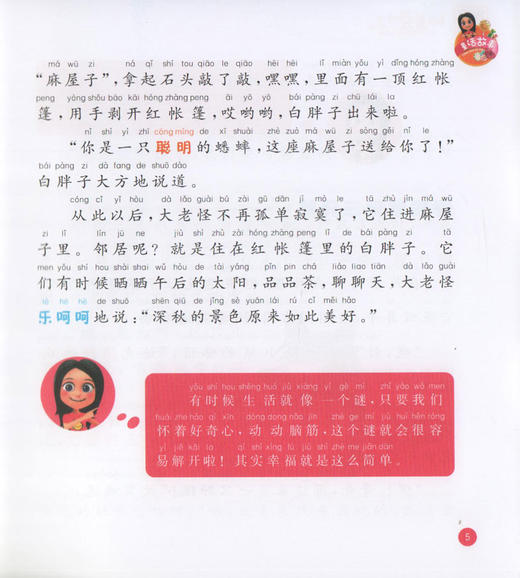 童话故事
má wū zi ná qǐ shí tou qiāo le qiāo hēi hēi lǐ miàn yǒu yì dǐng hóng zhàng
“麻屋子”，拿起石头敲了敲，嘿嘿，里面有一顶红帐
peng yòng shǒu bāo kāi hóng zhàng peng āi yō yō bái pàng zi chū lái la
篷，用手剥开红帐篷，哎哟哟，白胖子出来啦。
nǐ shì yì zhī cōng míng de xī shuài zhè zuò má wū zi sòng gěi nǐ le
“你是一只聪明的蟋蟀，这座麻屋子送给你了！”
bái pàng zi dà fang de shuō dào
白胖子大方地说道。
cóng cǐ yǐ hòu dà lǎo guài bú zài gū dān jì mò le tā zhù jìn má wū
从此以后，大老怪不再孤单寂寞了，它住进麻屋
zi lǐ lín jū ne jiù shì zhù zài hóng zhàng peng lǐ de bái pàng zi tā
子里。邻居呢？就是住在红帐篷里的白胖子。它
men yǒu shí hou shài shai wǔ hòu de tài yáng pǐn pin chá liáo liao tiān dà lǎo guài
们有时候晒晒午后的太阳，品品茶，聊聊天，大老怪
lè hē hē de shuō shēn qiū de jǐng sè yuán lái rú cǐ měi hǎo
乐呵呵地说：“深秋的景色原来如此美好。”
yǒu shí hou shēng huó jiù xiàng yí gè mí zhǐ yào wǒ men
有时候生活就像一个谜，只要我们
huái zhe hào qí xīn dòng dong nǎo jīn zhè ge mí jiù huì hěn róng
怀着好奇心，动动脑筋，这个谜就会很容
yì jiě kāi la qí shí xìng fú jiù shì zhè me jiǎn dān
易解开啦！其实幸福就是这么简单。
5